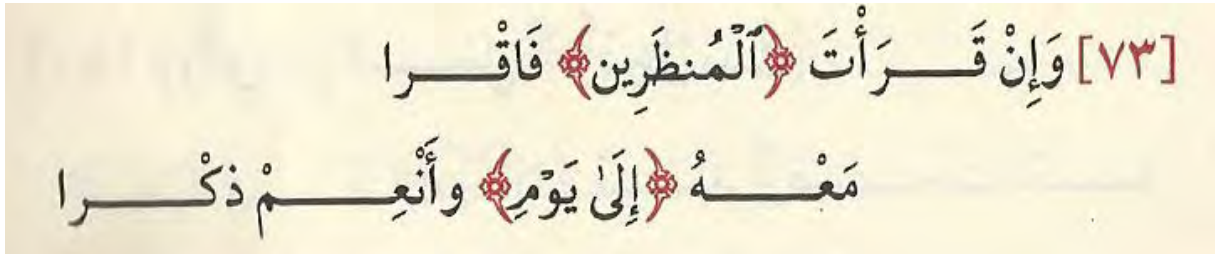 [٧٣] وَإِنْ قَـــرَأْتَ ﴿ٱلْمُنظَرِين﴾ فَاقْـــرا
مَعْـــهُ ﴿إِلَىٰ يَوْمِ﴾ وأَنْعِـــمْ ذكْـــرا